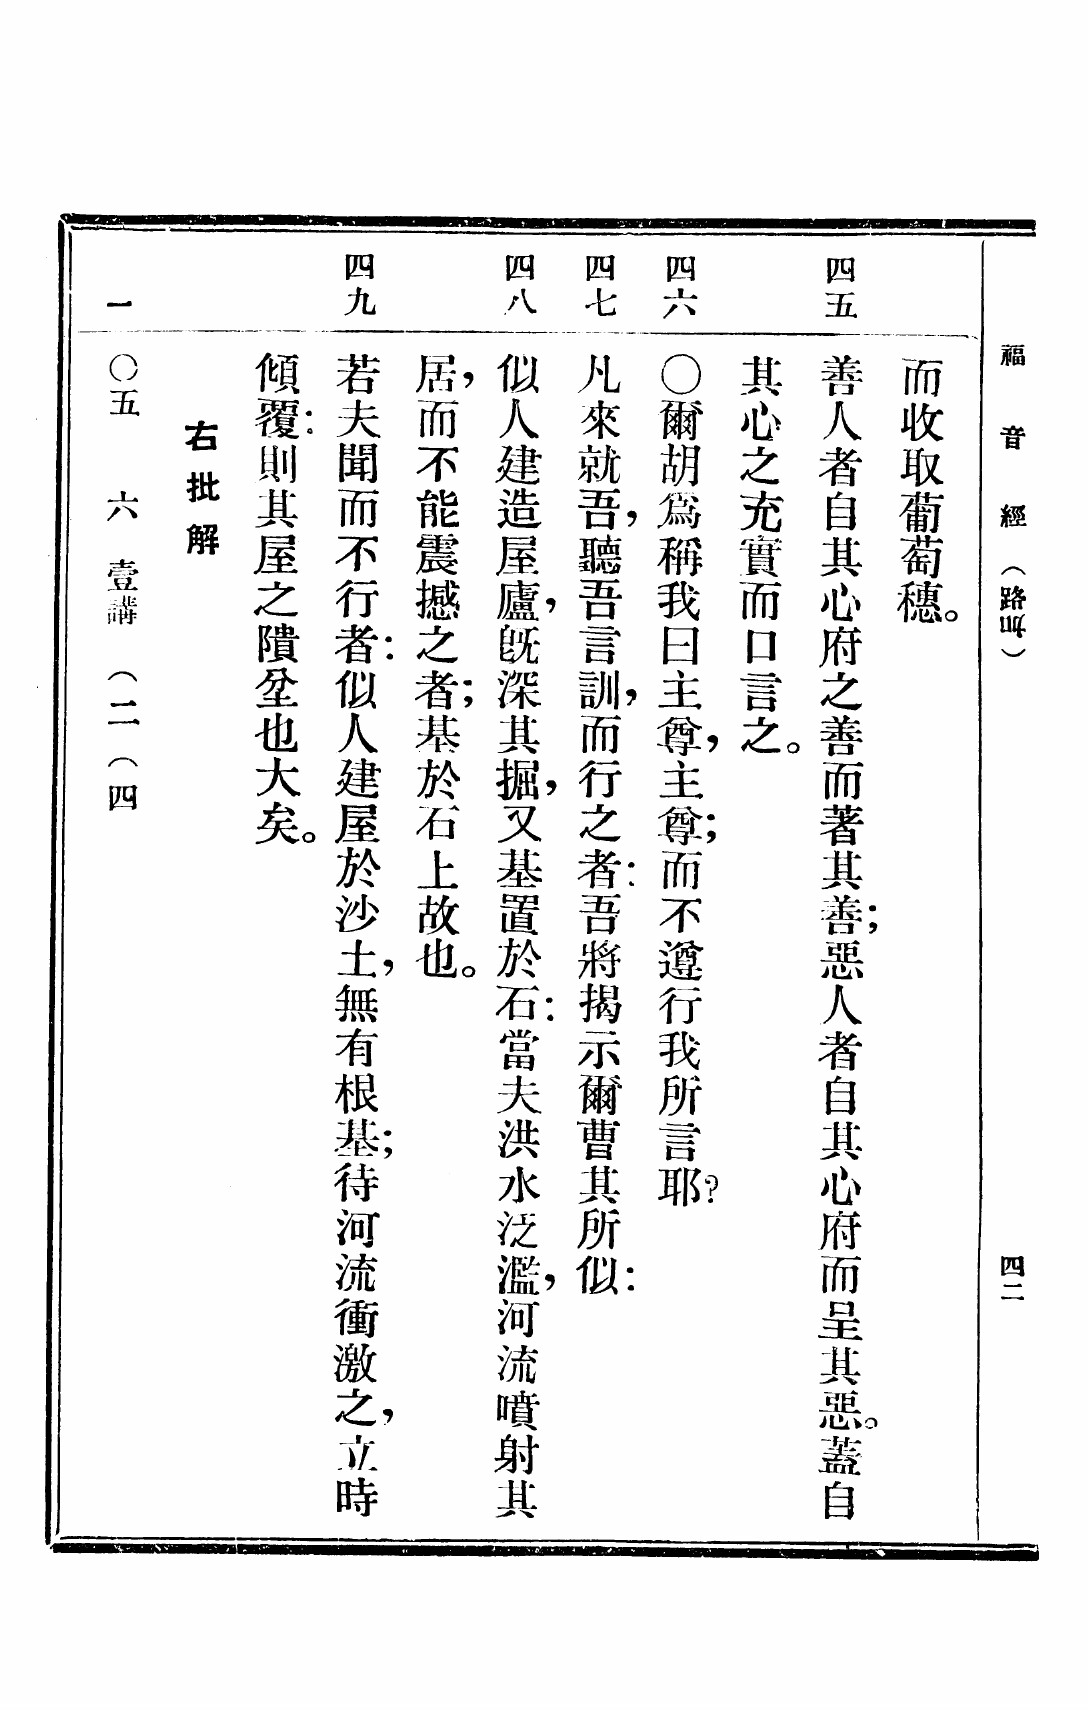 福音經（路加）　四二
而收取葡萄穗。
四五　善人者自其心府之善而著其善；惡人者自其心府而呈其惡。蓋自
其心之充實而口言之。
四六　〇爾胡爲稱我曰主尊，主尊；而不遵行我所言耶？
四七　凡來就吾，聽吾言訓，而行之者：吾將揭示爾曹其所似：
四八　似人建造屋廬，旣深其掘，又基置於石：當夫洪水泛濫，河流噴射其
居，而不能震撼之者；基於石上故也。
四九　若夫聞而不行者：似人建屋於沙土，無有根基；待河流衝激之，立時
傾覆：則其屋之隤坌也大矣。
右批解
一　〇五　六　壹講（二（四